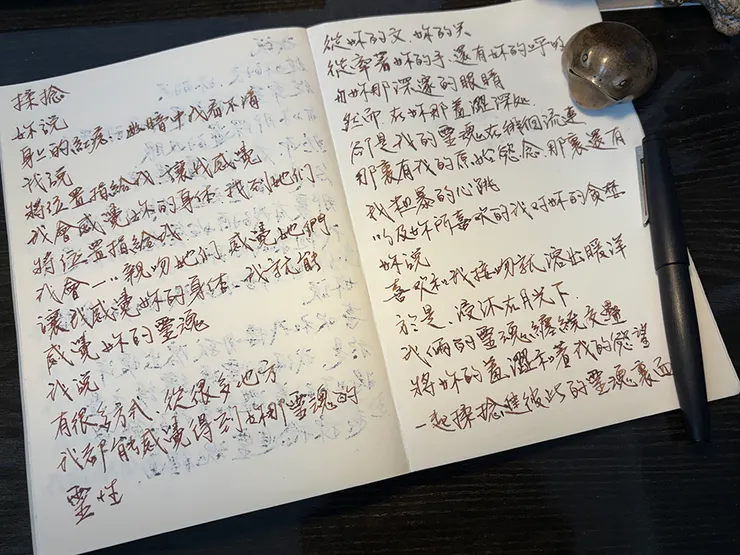 揉捻
妳說
身上的紅痣，幽暗中我看不清
我說
將位置指給我，讓我感覺
我會感覺妳的身体，找到她们
將位置指給我
我會一一親吻她们，感覺她們，
讓我感覺妳的身体，我就能
感覺妳的靈魂
我說
有很多方式，從很多地方
我都能感覺得到妳那靈魂的
靈性
從妳的文，妳的笑
從牽著妳的手，還有妳的呼吸
和妳那深邃的眼睛
然而在妳那羞澀深处
卻是我的靈魂在徘徊流連
那裏有我的原始慾念，那裏還有
我粗暴的心跳
以及妳所喜欢的我对妳的貪婪
妳說
喜欢和我接吻就溶出暖洋
於是，浸沐在月光下
我倆的靈魂纏繞交疊
將妳的羞澀和著我的慾望
一起揉捻進彼此的靈魂裏面